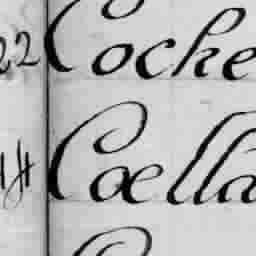 22 Cocke
14 Coella